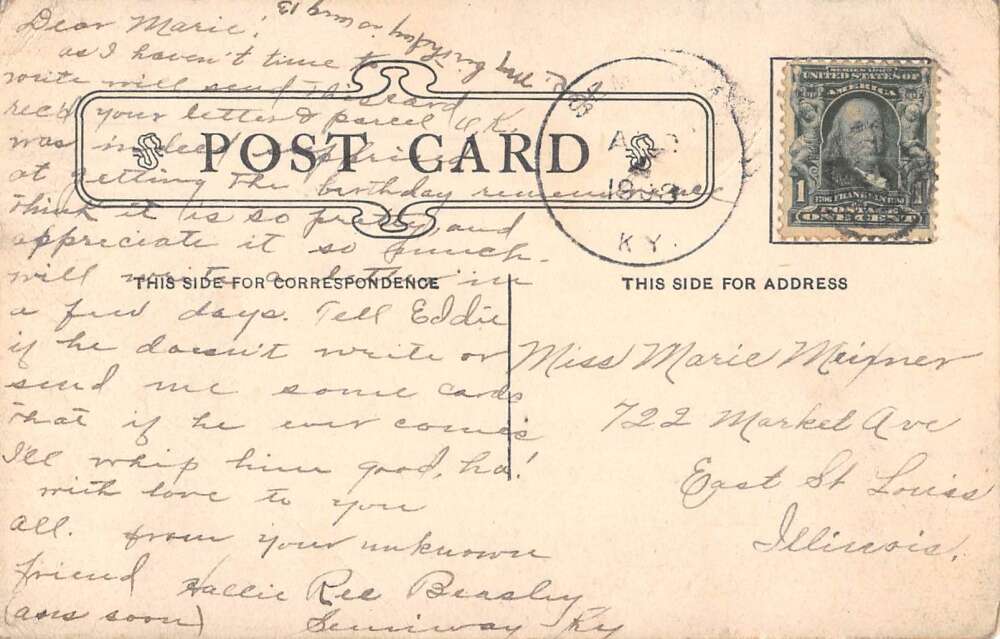 My Birthday is Aug 13
Dear Marie!
as I haven't time to
write will send this card
rec'd your letter & parcel O.K.
was indeed surprised
at getting the birthday remembrance
think it is so pretty and
appreciate it so much.
will write a letter in
a few days. Tell Eddie
if he doesn't write or
send me some cards
that if he ever comes
I'll whip him good, ha!
with love to you
all. from your unknown
friend Hallie Ree Beasley
(ans soon) Ky
POST CARD
THIS SIDE FOR CORRESPONDENCE
THIS SIDE FOR ADDRESS
1908
KY.
SERIES 1902
UNITED STATES OF
AMERICA
1706 FRANKLIN 1790
POSTAGE
1 ONE CENT
Miss Marie Meixner
722 Market Ave
East St Louis
Illinois.